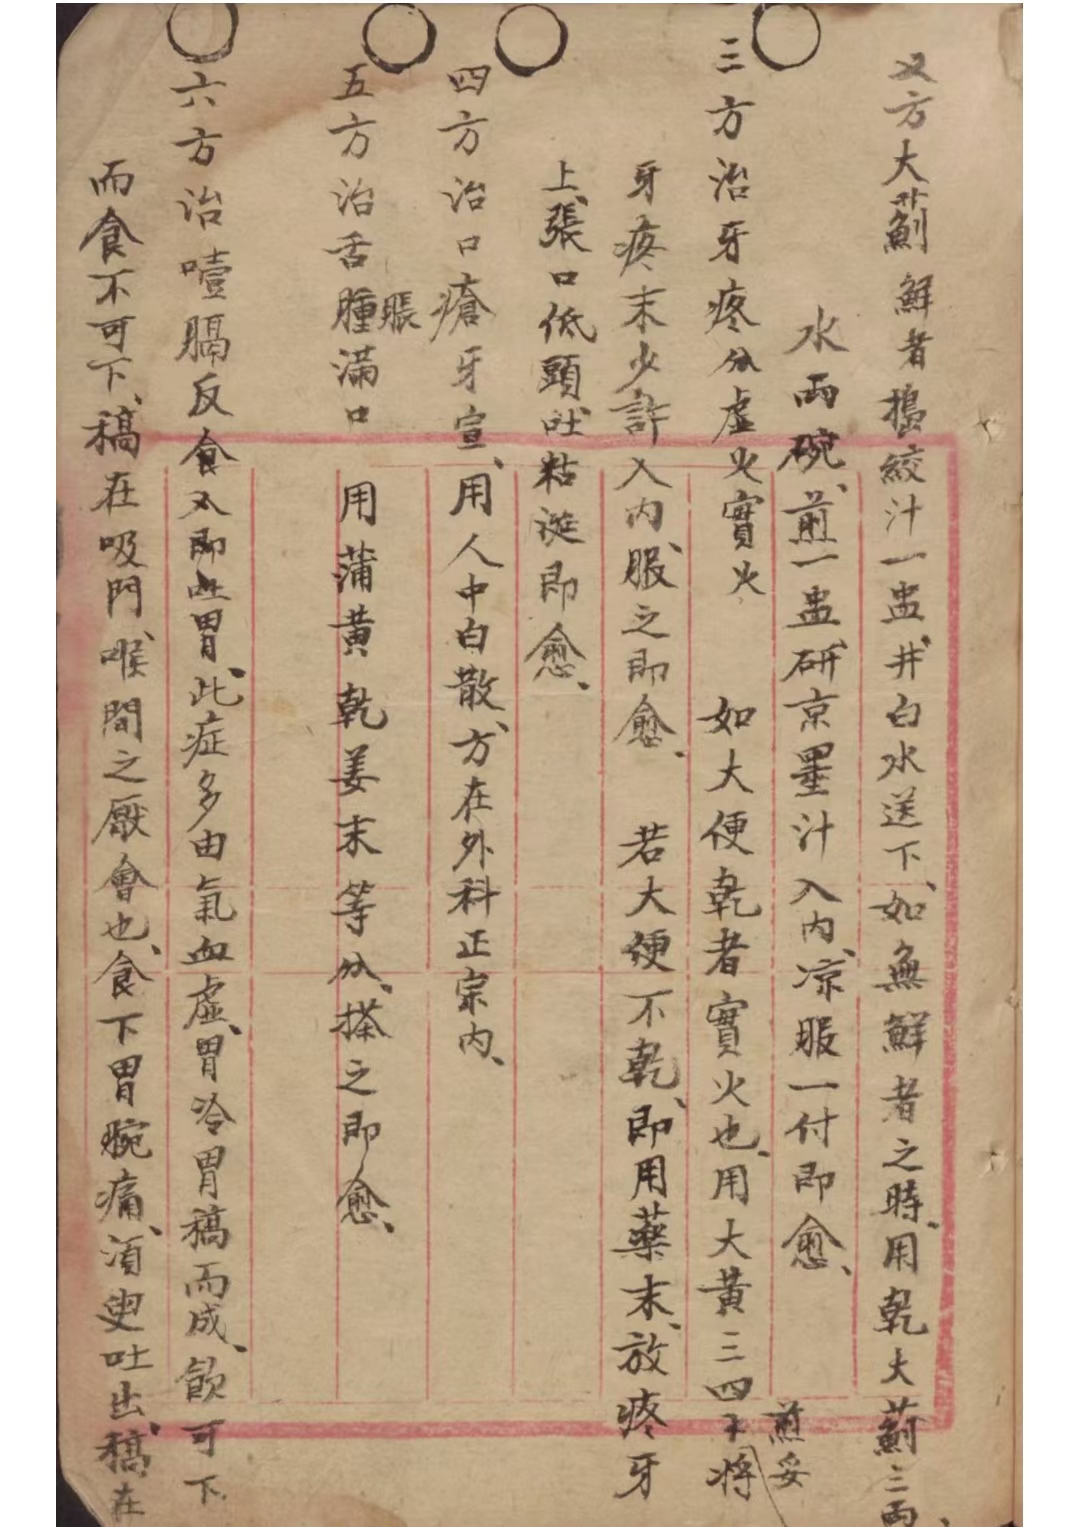 又方大薊鮮者搗絞汁一盅、井白水送下、如無鮮者之時、用乾大薊三兩、
水兩碗、煎一盅、研京墨汁入內、凉服一付即愈、
三方治牙疼分虛火實火 如大便乾者實火也、用大黃三四卜將
煎妥
牙疼末少許入內、服之即愈、 若大便不乾、即用藥末、放疼牙
上、張口低頭吐、粘涎即愈、
四方治口瘡牙宣、用人中白散、方在外科正宗內、
五方治舌腫脹滿口 用蒲黃乾姜末等分、搽之即愈、
六方治噎膈反食又即吐胃、此症多由氣血虛、胃冷胃稿而成、飲可下
而食不可下、稿在吸門、喉間之厭會也、食下胃腕痛、須臾吐出、稿在